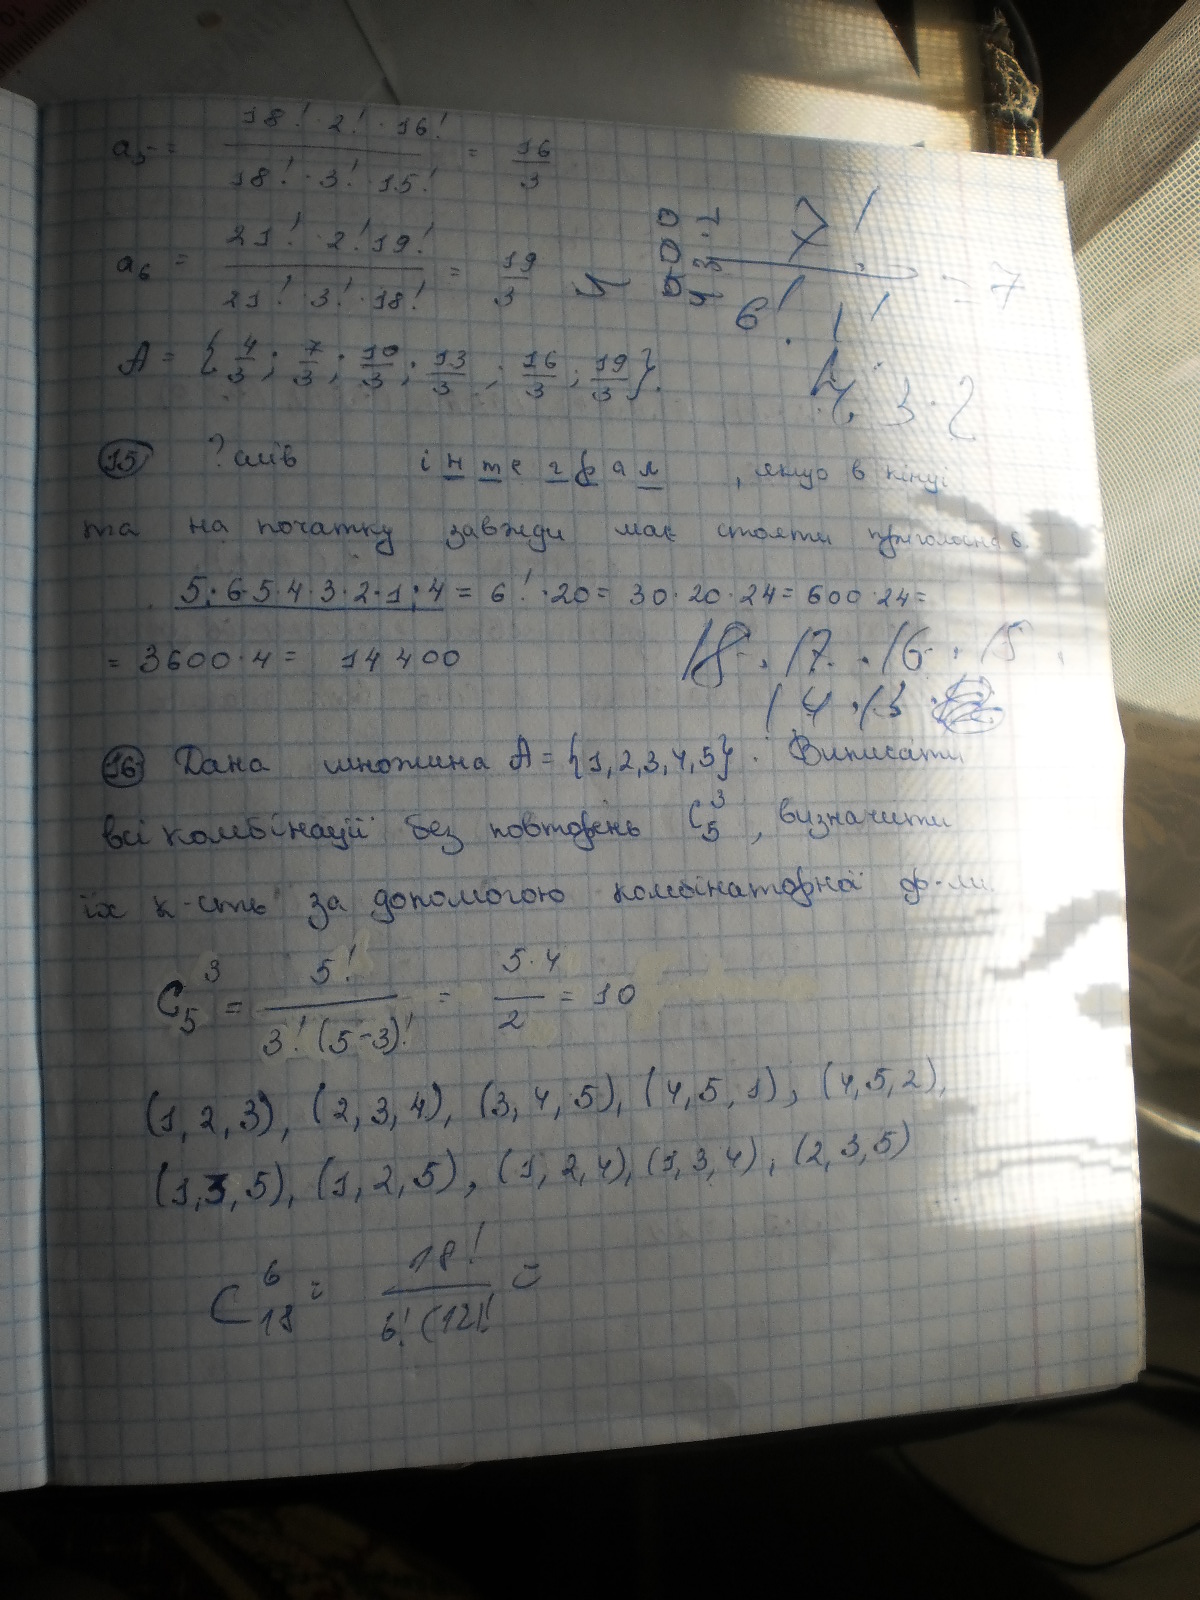 a₅ = 18! · 2! · 16! / 18! · 3! · 15! = 16/3
a₆ = 21! · 2! 19! / 21! · 3! · 18! = 19/3
7! / 6! · 1! = 7
A = {4/3; 7/3; 10/3; 13/3; 16/3; 19/3}.
4 · 3 · 2
15 ? слів інтеграл, якщо в кінці
та на початку завжди має стояти приголосна б.
5 · 6 · 5 · 4 · 3 · 2 · 1 · 4 = 6! · 20 = 30 · 20 · 24 = 600 · 24 =
= 3600 · 4 = 14 400
18 · 17 · 16 · 15
14 · 13 ·
16 Дана множина A = {1, 2, 3, 4, 5}. Виписати
всі комбінації без повторень C₅³, визначити
їх к-сть за допомогою комбінаторної ф-ли.
C₅³ = 5! / 3! (5-3)! = 5 · 4 / 2 = 10
(1, 2, 3), (2, 3, 4), (3, 4, 5), (4, 5, 1), (4, 5, 2),
(1, 3, 5), (1, 2, 5), (1, 2, 4), (1, 3, 4), (2, 3, 5)
C₁₈⁶ = 18! / 6! (12)! =